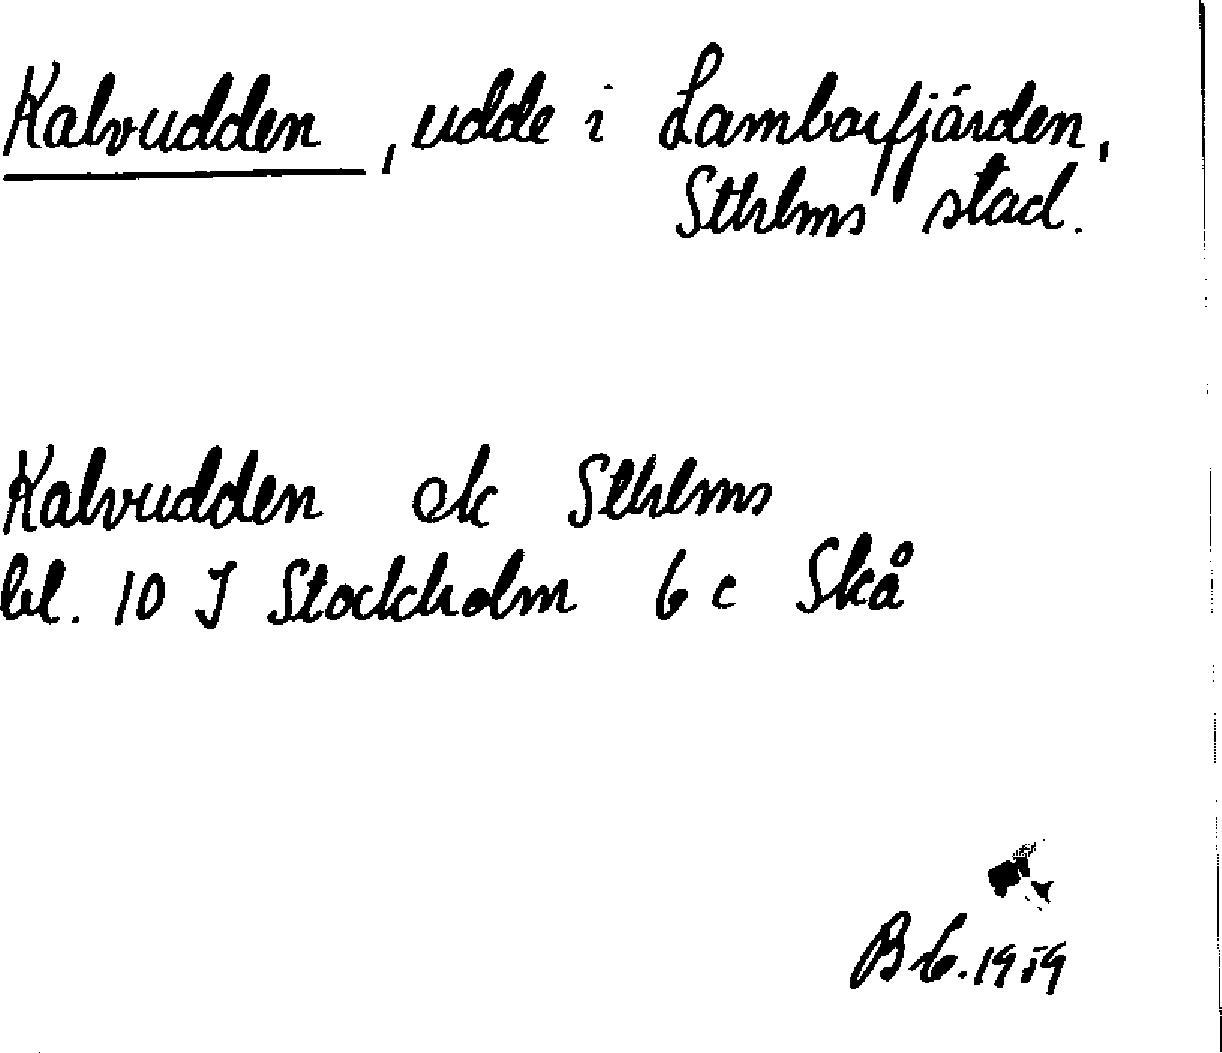 Kalvudden, udde i Lambarfjärden,
Sthlms stad.
Kalvudden ek Sthlms
bl. 10 I Stockholm 6 c Skå
1959